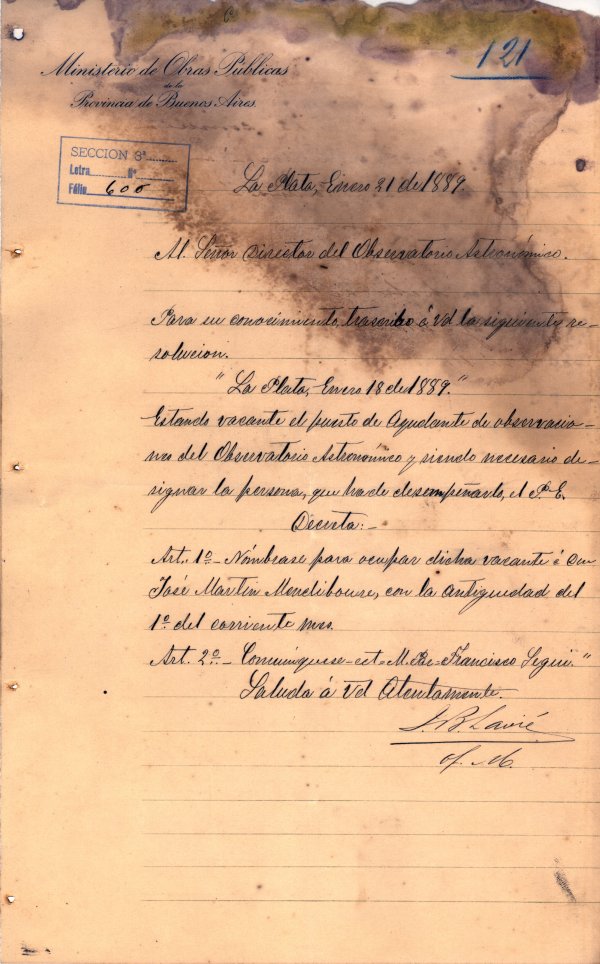 121
Ministerio de Obras Públicas
de la
Provincia de Buenos Aires.
SECCION 3ª
Letra Nº
Fólio 600
La Plata, Enero 21 de 1889.
Al Señor Director del Observatorio Astronómico.
Para su conocimiento, trascribo á Vd la siguiente re-
solucion.
"La Plata, Enero 18 de 1889."
Estando vacante el puesto de Ayudante de observacio-
nes del Observatorio Astronómico y siendo necesario de-
signar la persona, que ha de desempeñarlo, el P. E.
Decreta:-
Art. 1º- Nómbrase para ocupar dicha vacante á Don
José Martin Mendiboure, con la antiguedad del
1º del corriente mes.
Art. 2º- Comuníquese-ect= M. Paz= Francisco Seguí."
Saluda á Vd Atentamente.
J. B. Lavié
of. M.